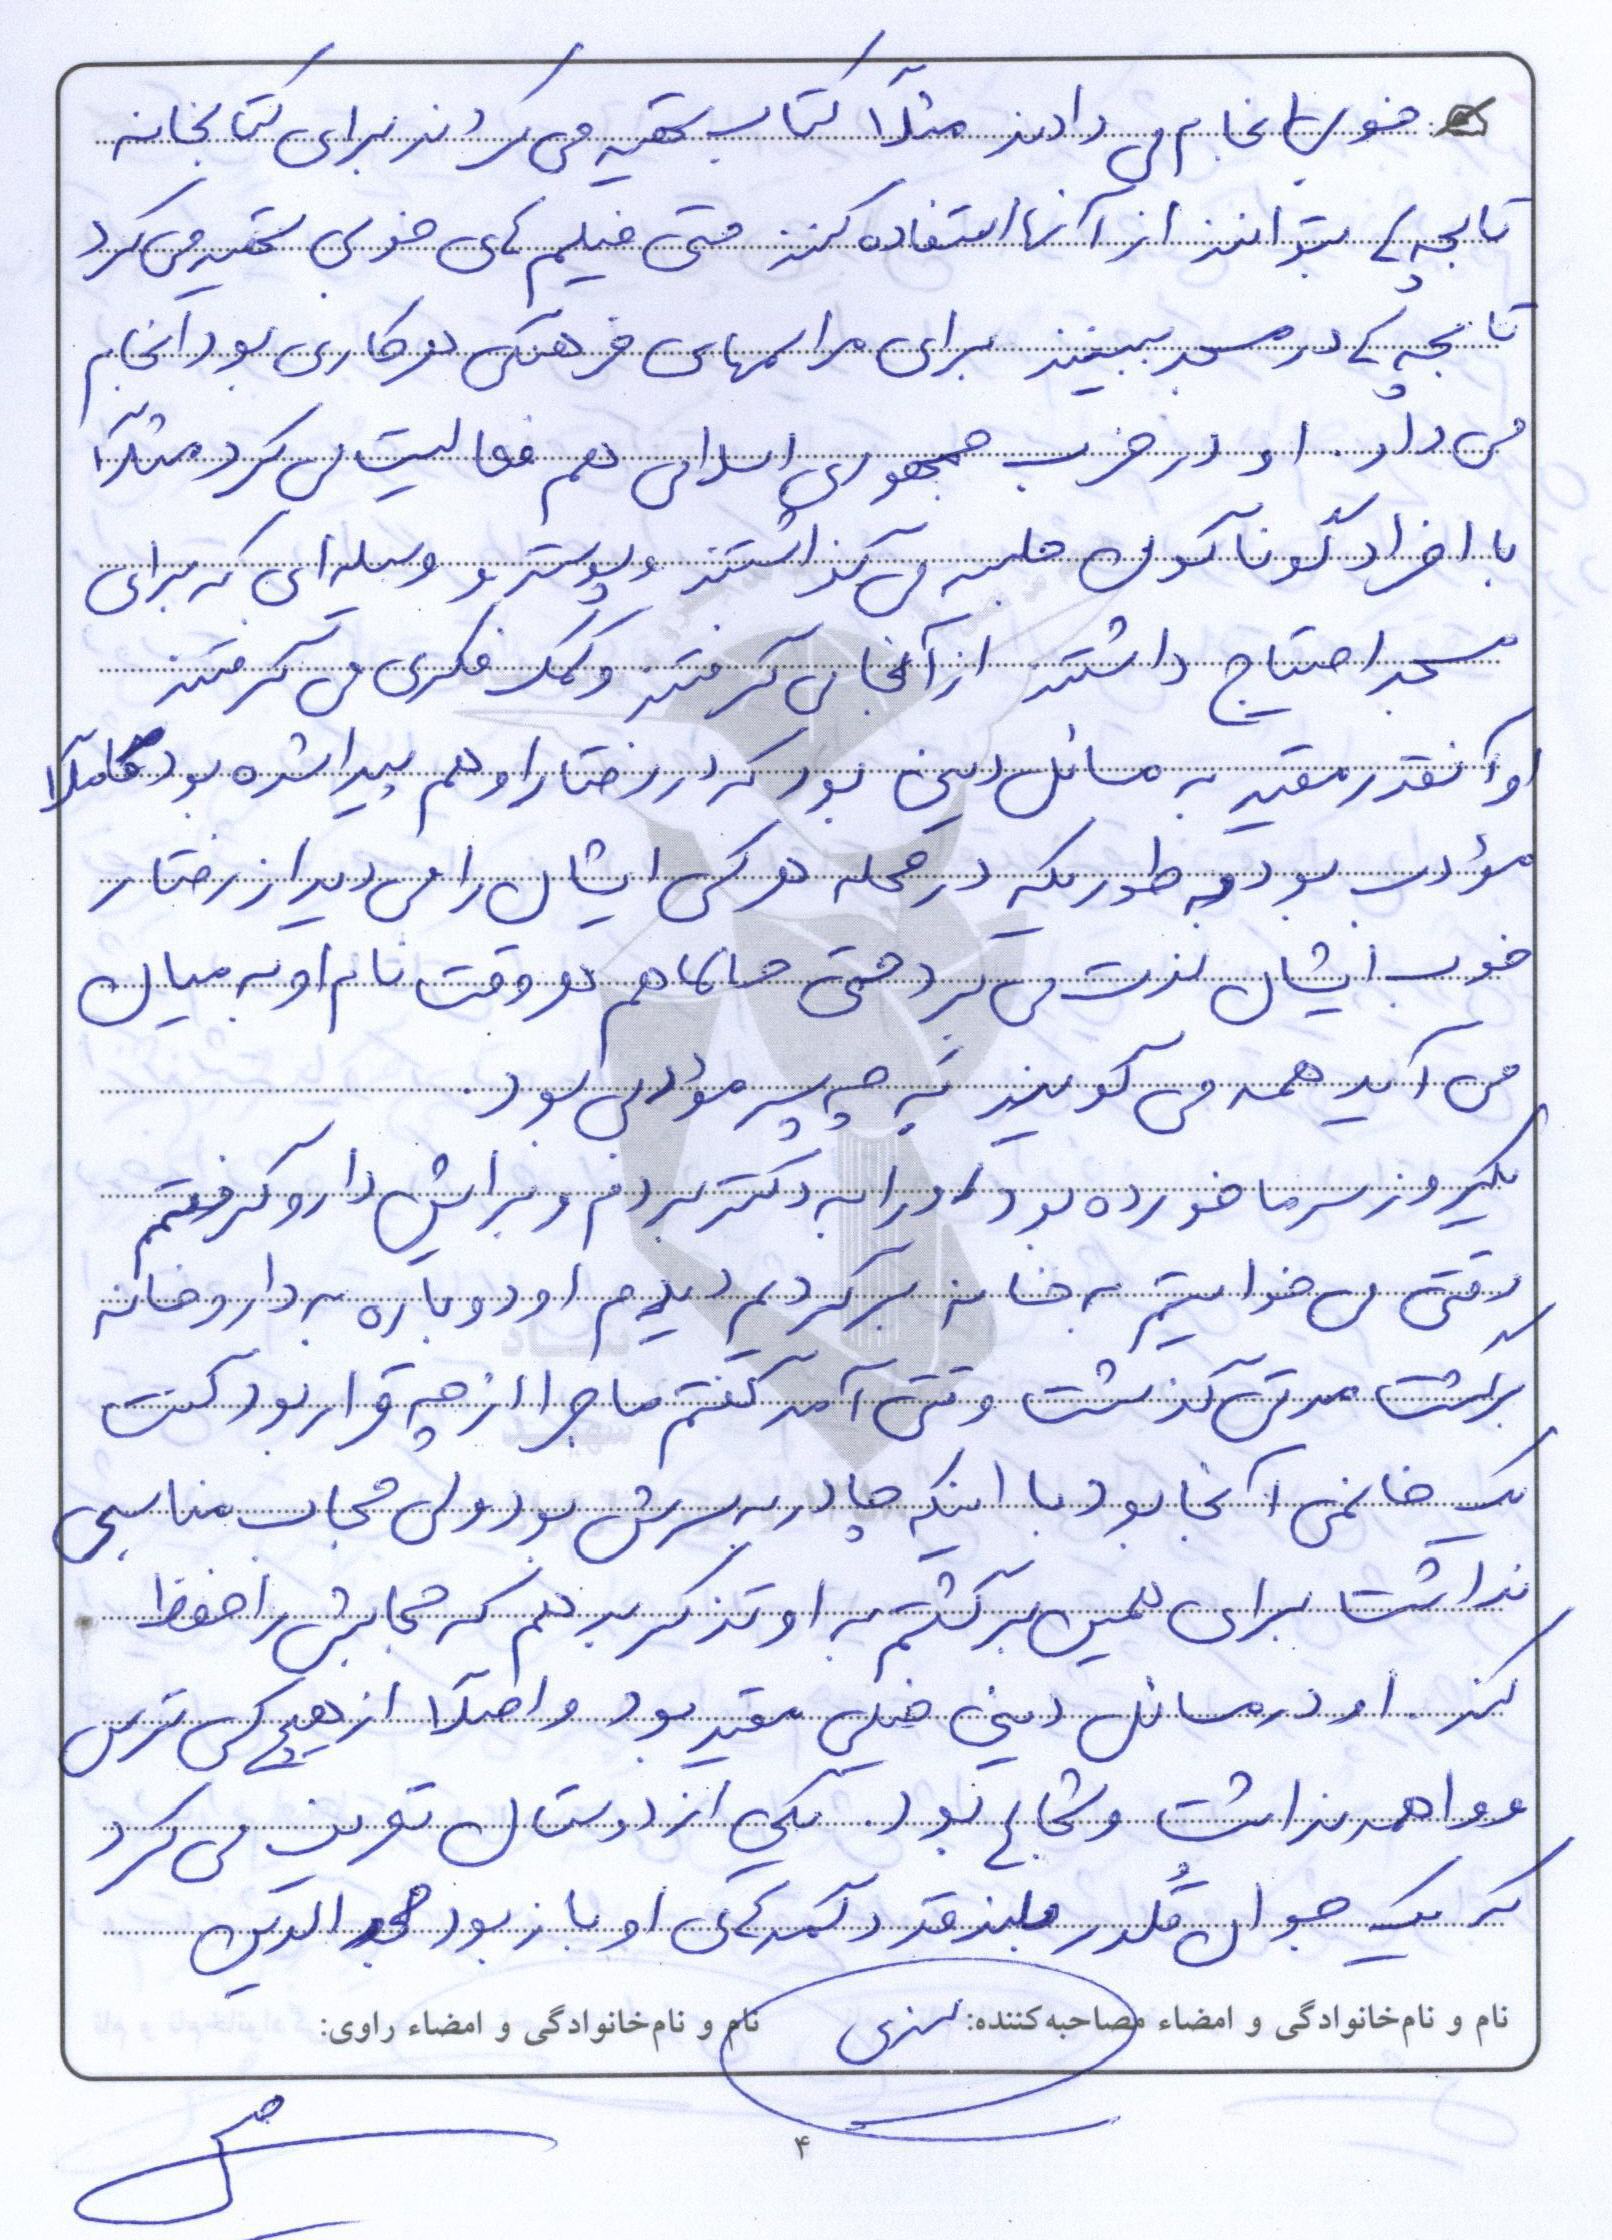 خوبی انجام می دادند مثلاً کتاب تهیه می کردند برای کتابخانه
تا بچه ها بتوانند از آنها استفاده کنند حتی فیلم های خوبی تهیه می کرد
تا بچه ها در مسجد ببینند برای مراسمهای فرهنگی هر کاری بود انجام
می داد. او در حزب جمهوری اسلامی هم فعالیت می کرد مثلاً
با افراد گوناگون جلسه می گذاشتند و پوستر و وسیله ای که برای
مسجد احتیاج داشتند از آنجا می گرفتند و کمک فکری می گرفتند
او آنقدر مقید به مسائل دینی بود که در رفتار او هم پیدا شده بود کاملاً
مؤدب بود به طوریکه در محله هر کس ایشان را می دید از رفتار
خوب ایشان لذت می برد حتی حالاها هم هر وقت نام او به میان
می آید همه می گویند که چه پسر مؤدبی بود.
یکروز سرما خورده بود او را به دکتر بردم و برایش دارو گرفتم
وقتی می خواستیم به خانه برگردیم دیدم او دوباره به داروخانه
برگشت مدتی گذشت وقتی آمد گفتم ماجرا از چه قرار بود گفت
یک خانمی آنجا بود با اینکه چادر به سرش بود ولی حجاب مناسبی
نداشت برای همین برگشتم به او تذکر بدهم که حجابش را حفظ
کند. او در مسائل دینی خیلی مقید بود و اصلاً از هیچ کس ترس
و واهمه نداشت و شجاع بود. یکی از دوستان تعریف می کرد
که یک جوان قُلدر بلند قد دکمه های او باز بود مجد الدین
نام و نام‌خانوادگی و امضاء مصاحبه‌کننده:
نام و نام‌خانوادگی و امضاء راوی:
۴